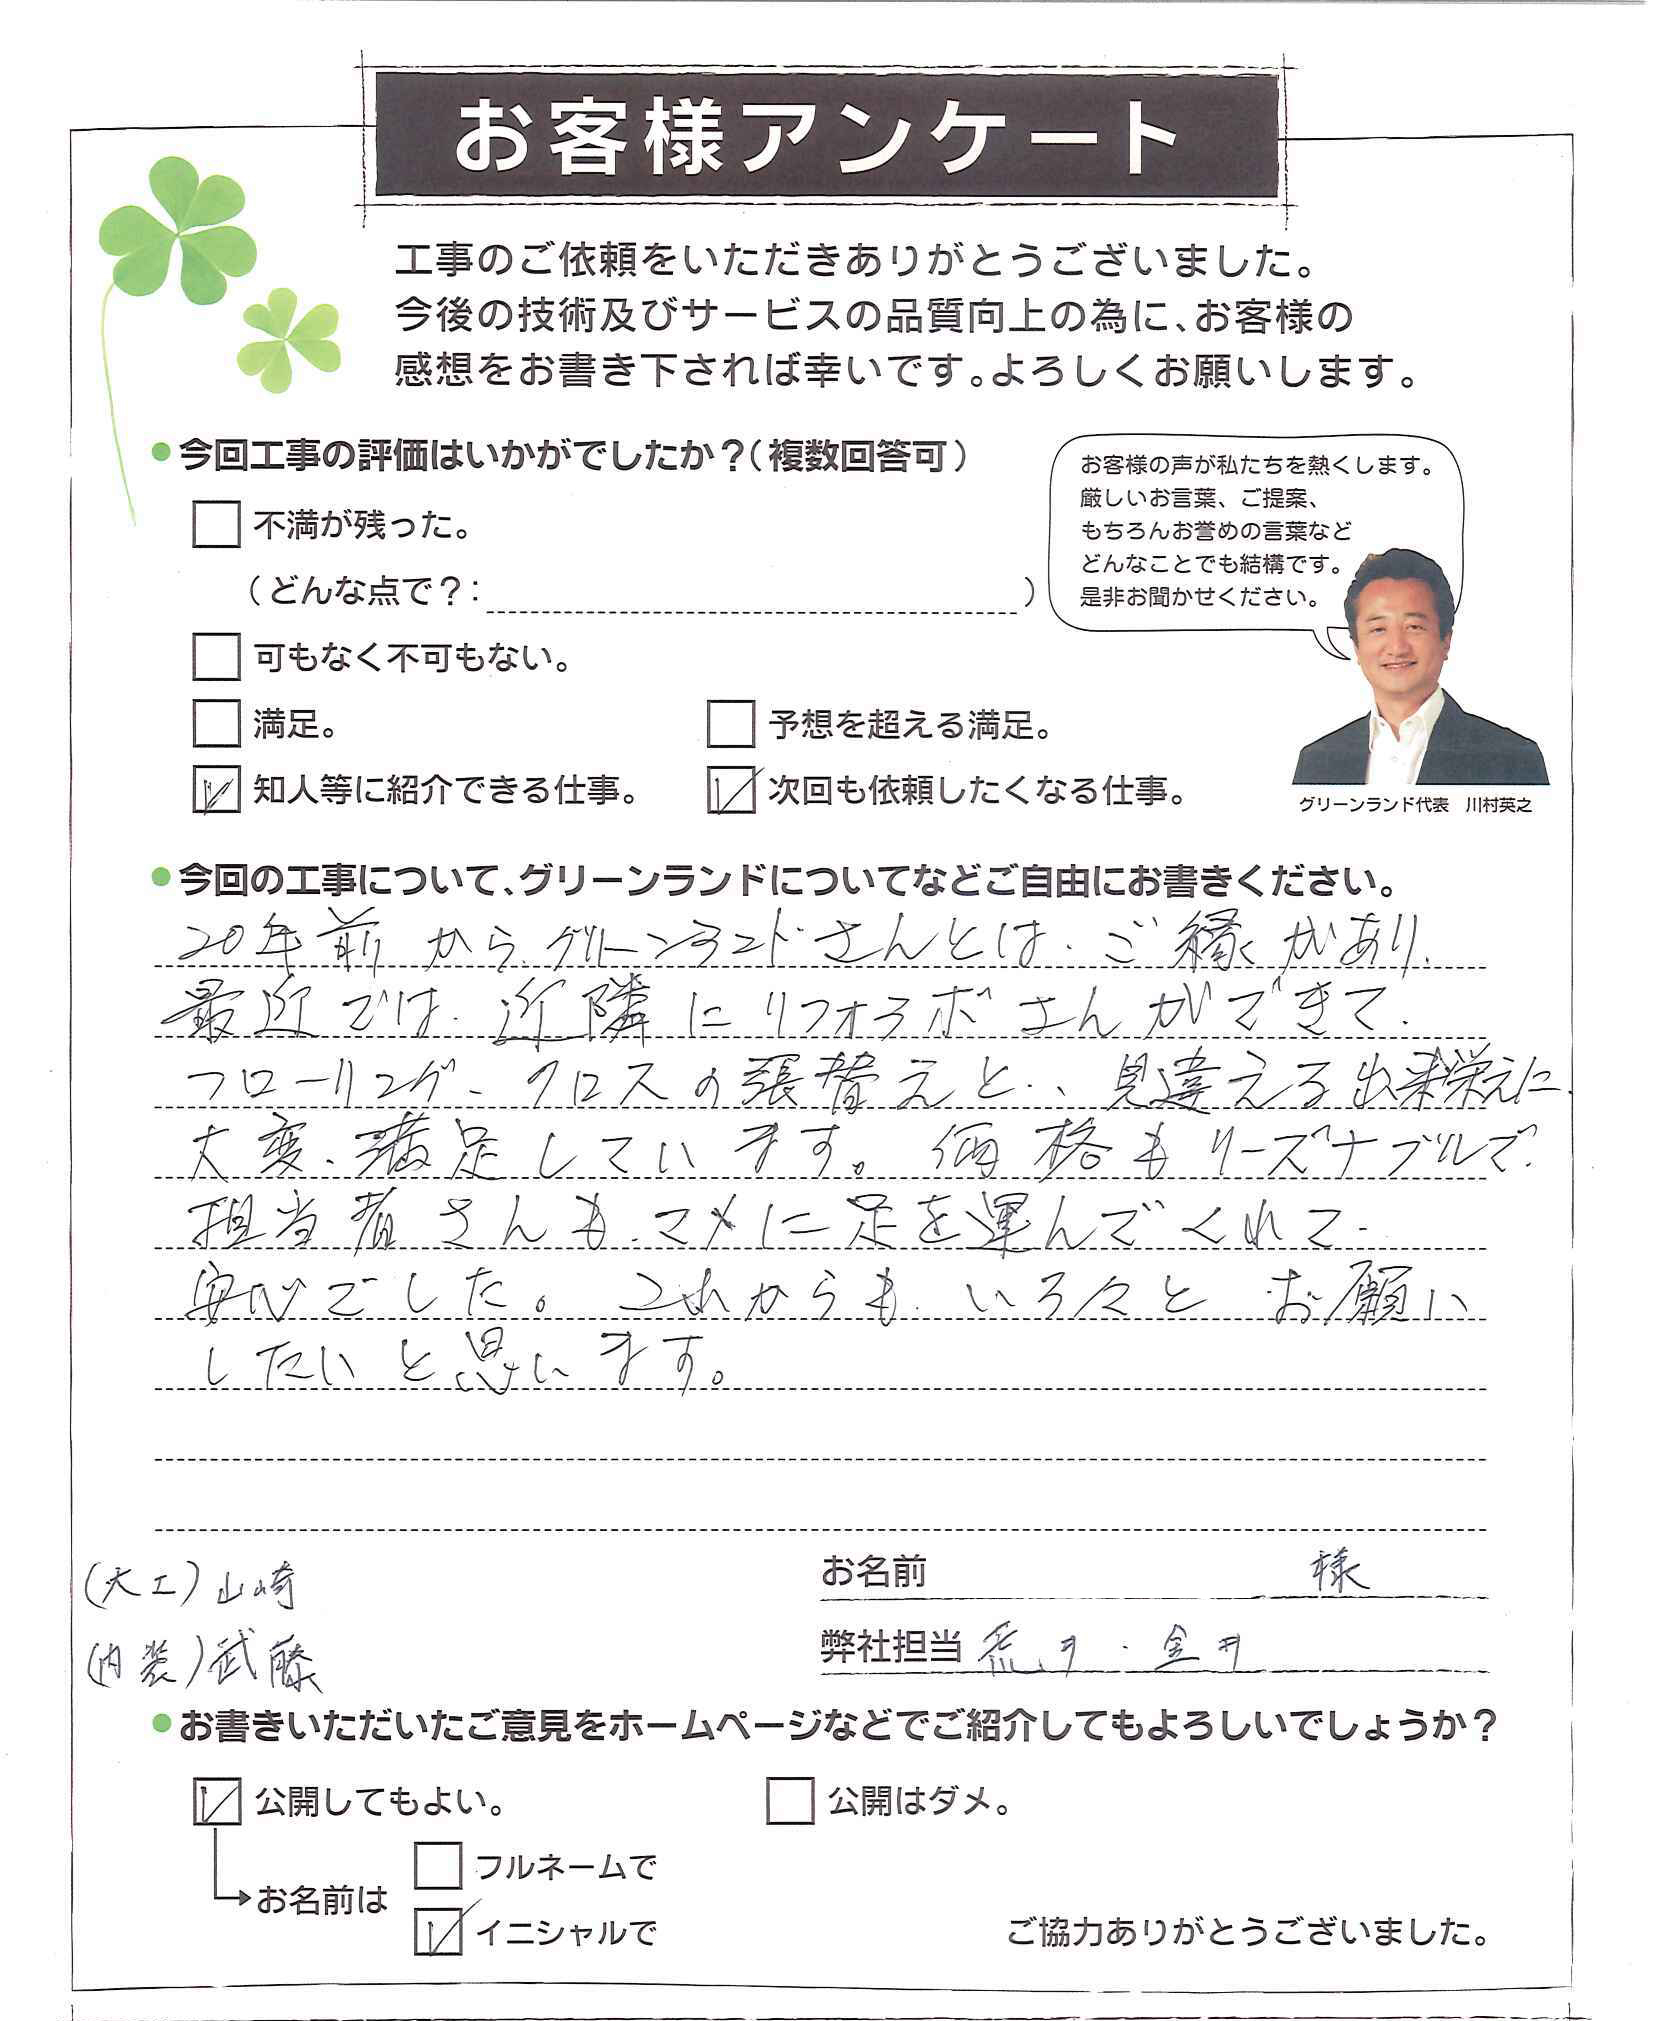 お客様アンケート
工事のご依頼をいただきありがとうございました。
今後の技術及びサービスの品質向上の為に、お客様の
感想をお書き下されば幸いです。よろしくお願いします。
●今回工事の評価はいかがでしたか？（複数回答可）
不満が残った。
（どんな点で？：　）
可もなく不可もない。
満足。　予想を超える満足。
知人等に紹介できる仕事。　次回も依頼したくなる仕事。
お客様の声が私たちを熱くします。
厳しいお言葉、ご提案、
もちろんお誉めの言葉など
どんなことでも結構です。
是非お聞かせください。
グリーンランド代表　川村英之
●今回の工事について、グリーンランドについてなどご自由にお書きください。
20年前から、グリーンランドさんとは、ご縁があり、
最近では、近隣にリフォラボさんができて、
フローリング、クロスの張替えと、、見違える出来栄えに、
大変、満足しています。価格もリーズナブルで、
担当者さんも、マメに足を運んでくれて、
安心でした。これからも、いろ々とお願い
したいと思います。
（大工）山崎
（内装）武藤
お名前　様
弊社担当 荒井・金井
●お書きいただいたご意見をホームページなどでご紹介してもよろしいでしょうか？
公開してもよい。　公開はダメ。
お名前は
フルネームで
イニシャルで
ご協力ありがとうございました。